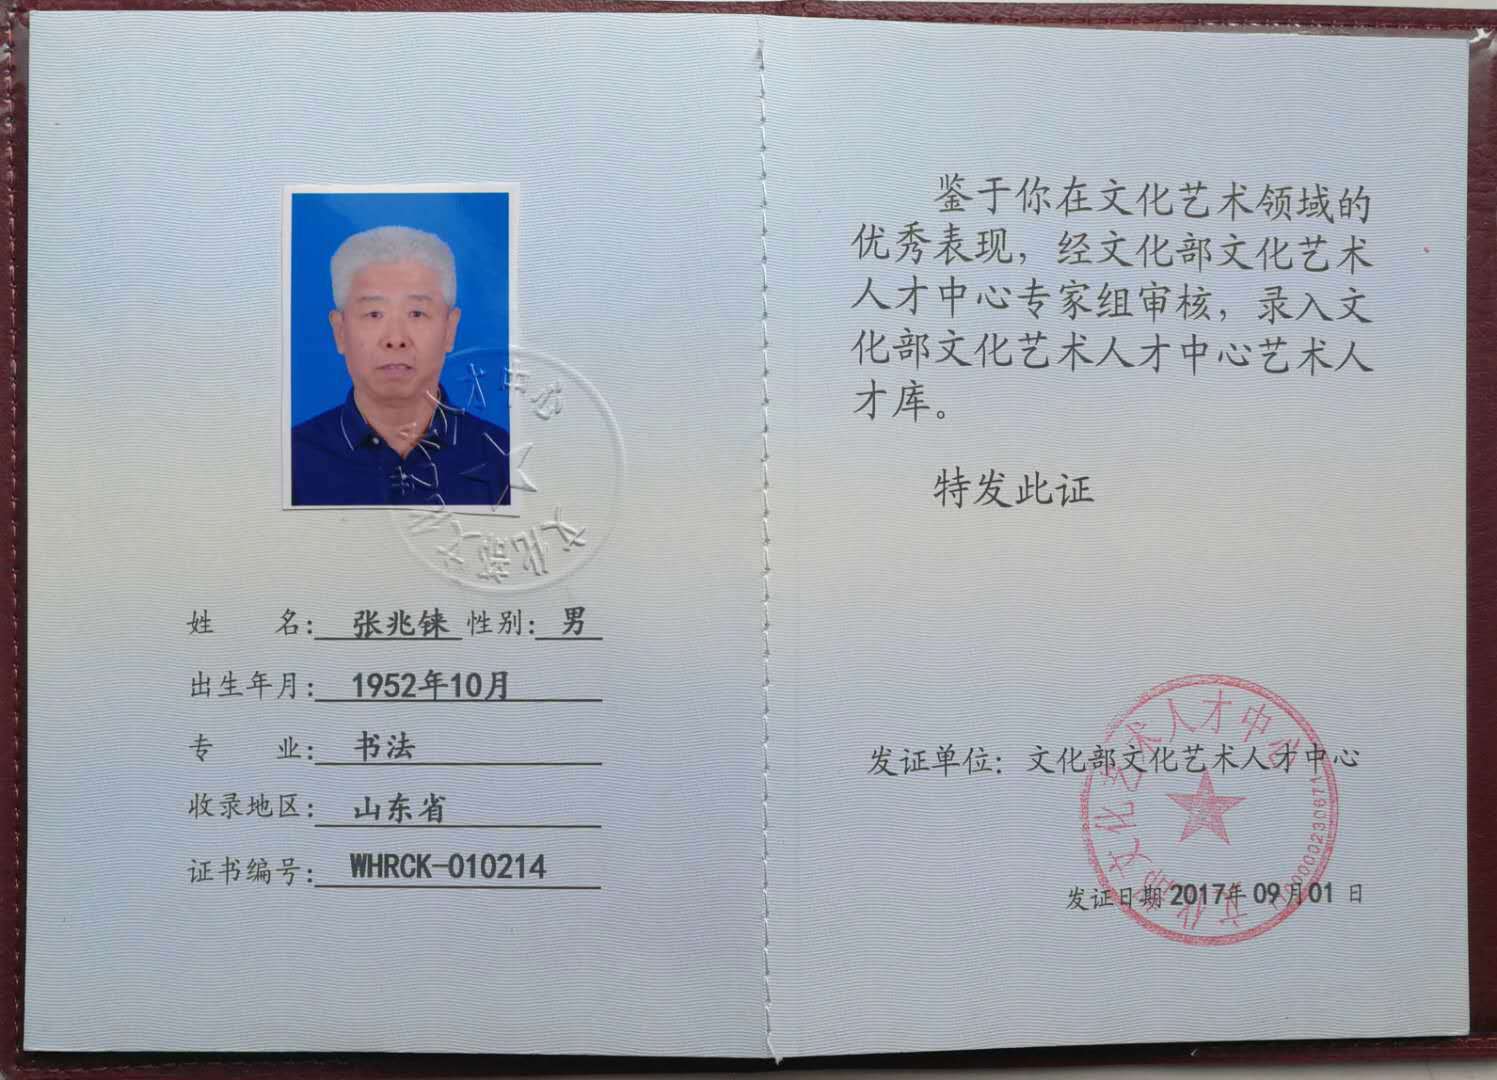 文化部文化艺术人才中心
姓 名: 张兆铼 性别: 男
出生年月: 1952年10月
专 业: 书法
收录地区: 山东省
证书编号: WHRCK-010214
鉴于你在文化艺术领域的
优秀表现，经文化部文化艺术
人才中心专家组审核，录入文
化部文化艺术人才中心艺术人
才库。
特发此证
发证单位: 文化部文化艺术人才中心
发证日期 2017年 09月01 日
文化部文化艺术人才中心